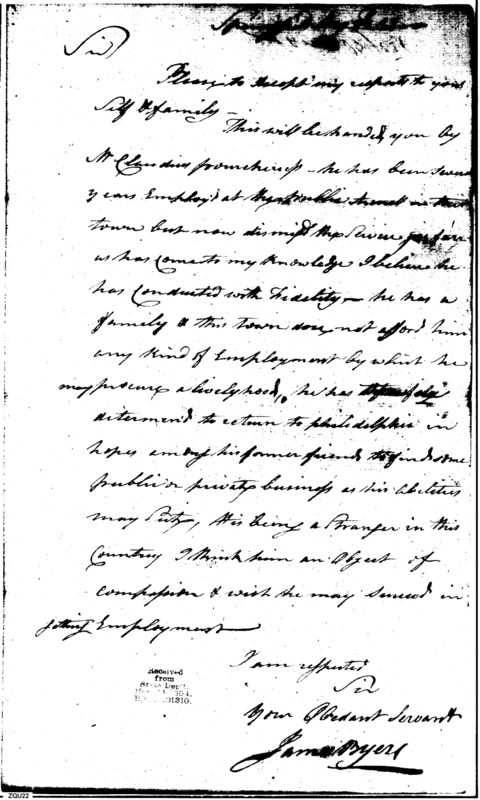 Sir
Please to accept my respects to your
Self & family –
This will be handed you by
Mr Claudius – he has been several
years Employ'd at the publick in this
town but now dismis'd the Service so far
as has come to my Knowledge I believe he
has Conducted with Fidelity – he has a
family & this town does not afford him
any Kind of Employment by which he
may procure a livelyhood, he has
determin'd to return to philedelphia in
hopes among his former friends to find some
publick or private business as his Abilities
may Suty, His being a Stranger in this
Country I think him an Object of
Compassion & wish he may succeed in
getting Employment
I am respected
Sir
Your Obedant Servant
James Byers
Received
from
State Dep't.
1310.
ZQU22